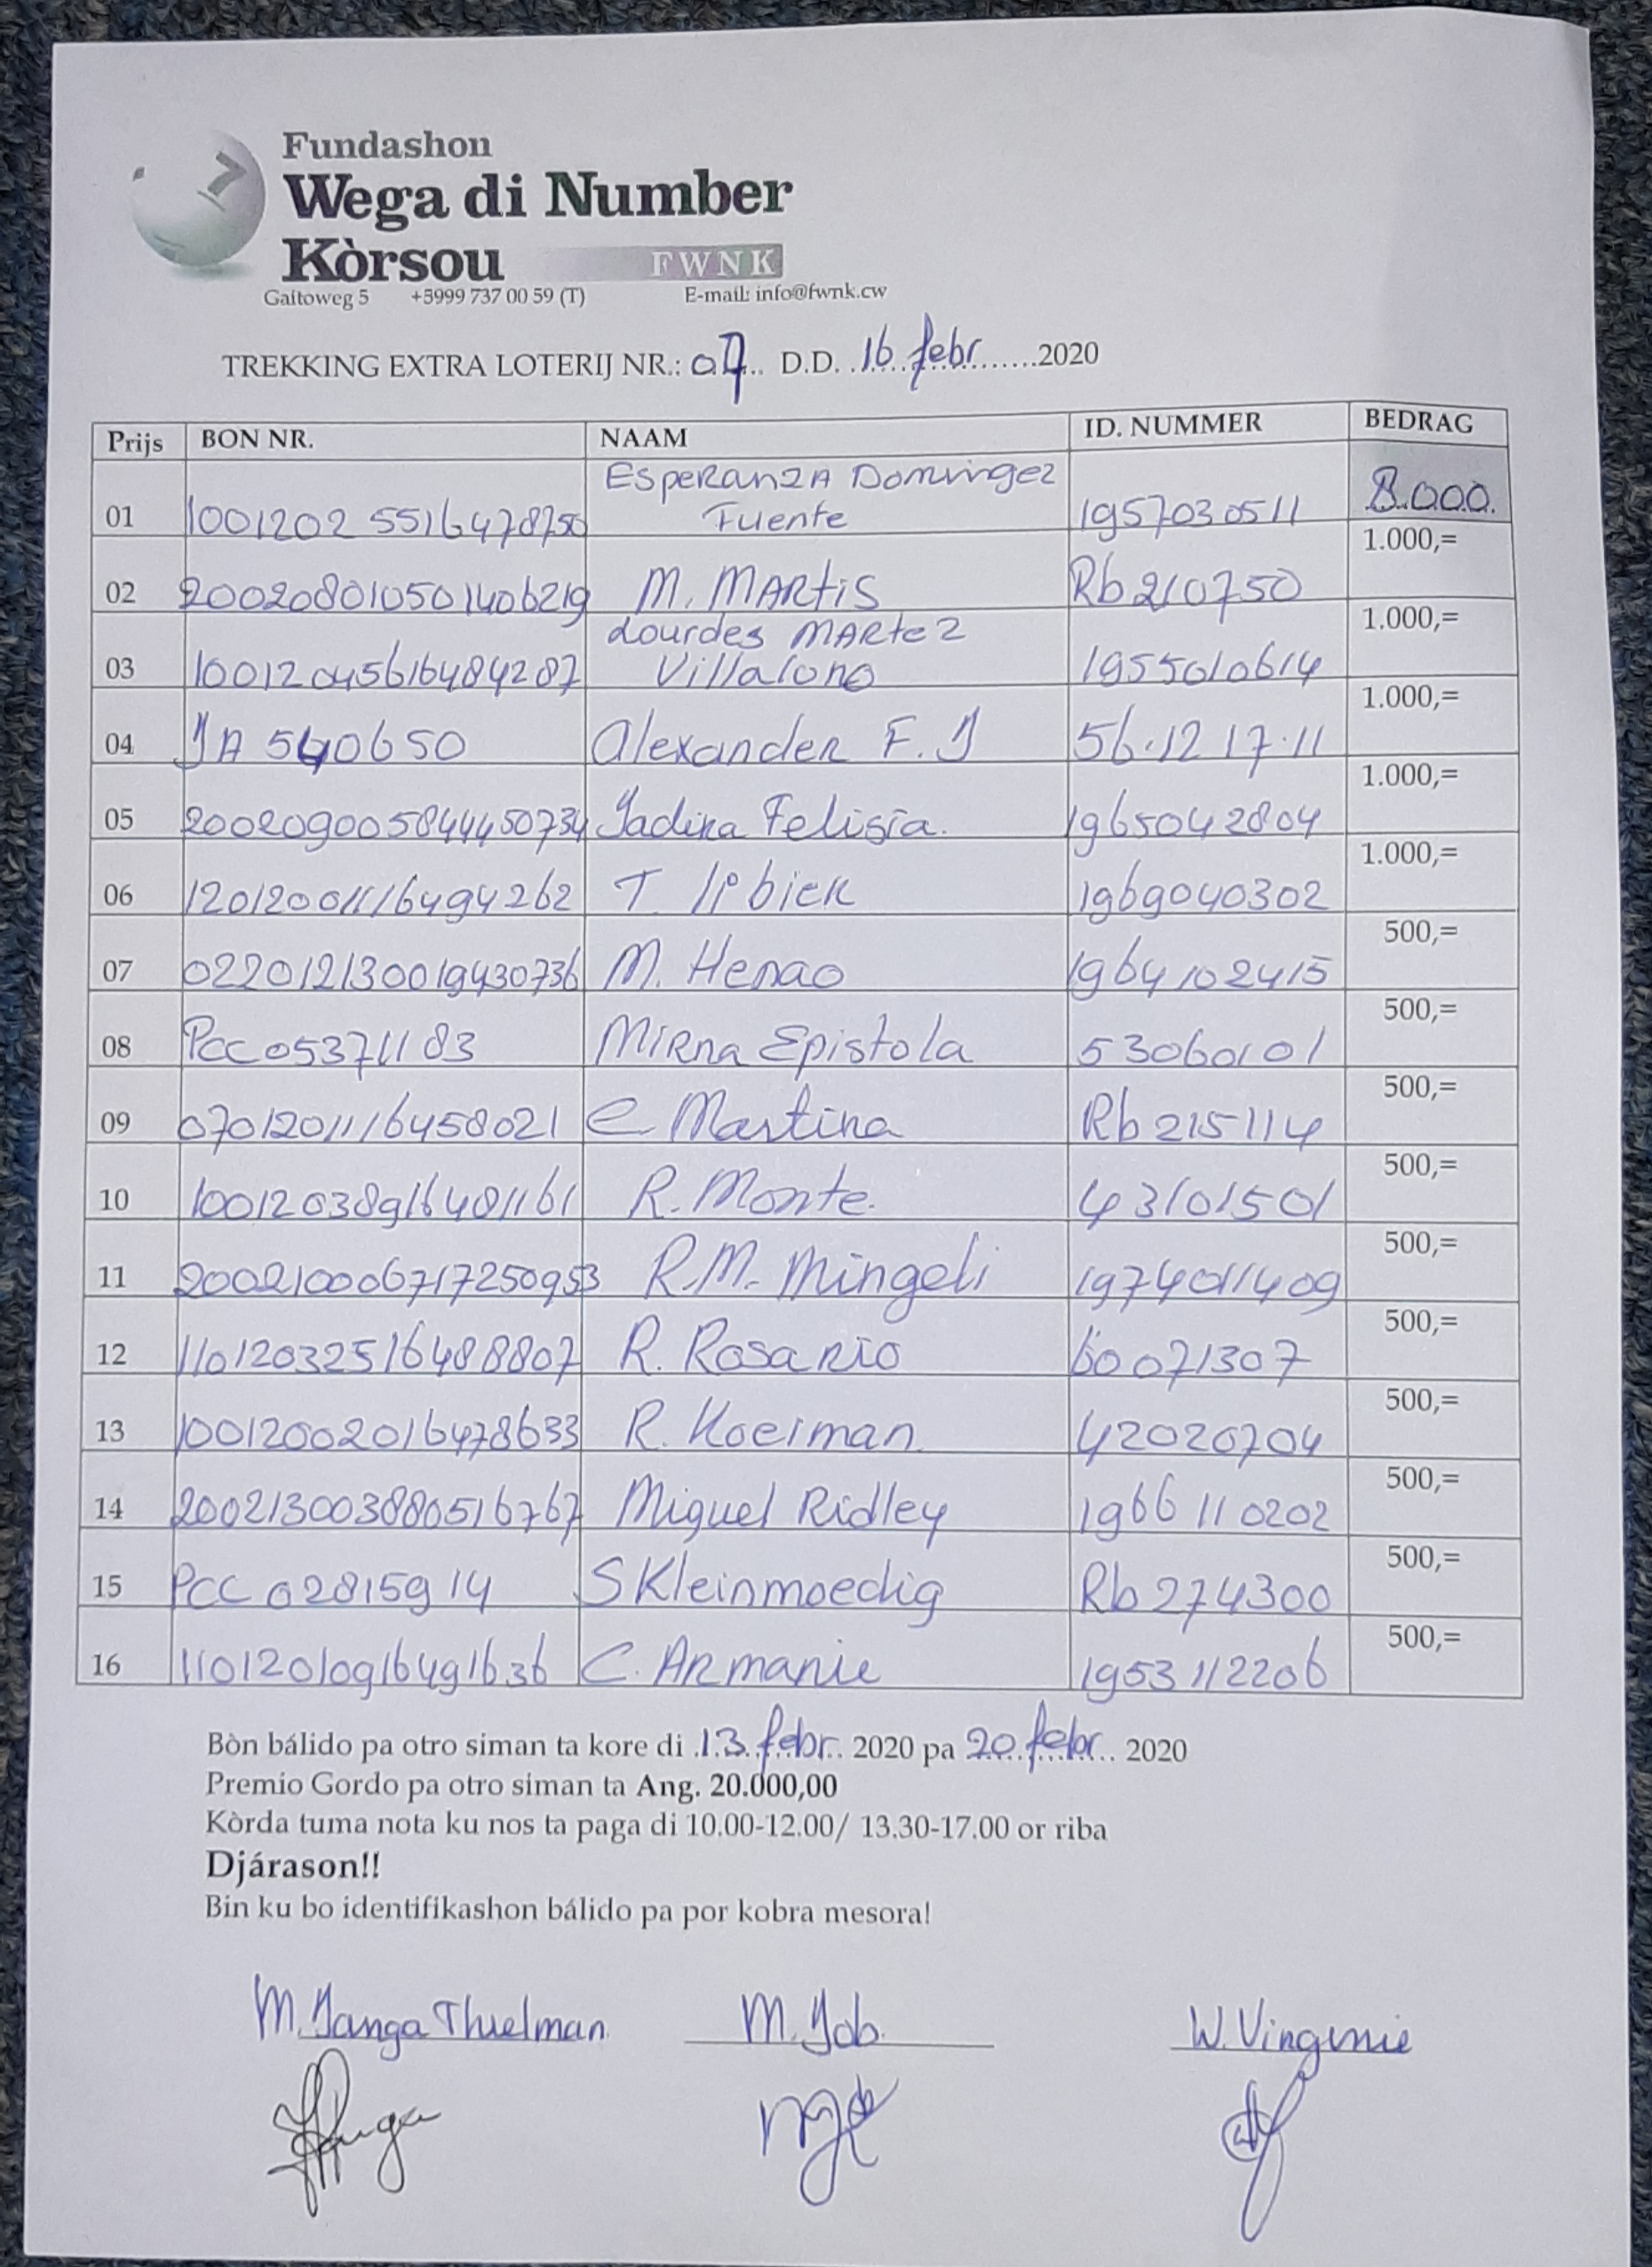 Fundashon
Wega di Number
Kòrsou FWNK
Gaitoweg 5 +5999 737 00 59 (T) E-mail: info@fwnk.cw
TREKKING EXTRA LOTERIJ NR.: 07 D.D. 16 febr 2020
Prijs BON NR. NAAM ID. NUMMER BEDRAG
01 1001202 5516478750 Esperanza Domingez Fuente 1957030511 8.000.
02 200208010501406219 M. Martis Rb 210750 1.000,=
03 10012045616484287 Lourdes Martez 1955010614 1.000,=
04 JA 540650 Alexander F. J 56.12 17.11 1.000,=
05 200209005844450734 Jadira Felisia. 1965042804 1.000,=
06 12012001116494262 T. 1969040302 1.000,=
07 022012130019430736 M. Henao 1964102415 500,=
08 PCC 05371183 Mirna Epistola 53060101 500,=
09 07012011116458021 C Martina Rb 215114 500,=
10 10012038916481161 R. Monte. 43101501 500,=
11 200210006717250953 R.M. Mingeli 1974011409 500,=
12 11012032516488807 R. Rosario 60071307 500,=
13 10012002016478633 R. Koeiman 42020704 500,=
14 200213003880516767 Miguel Ridley 1966 110202 500,=
15 PCC 02815914 S Kleinmoedig Rb 274300 500,=
16 11012010916491636 C. Armanie 1953112206 500,=
Bòn bálido pa otro siman ta kore di 13 febr. 2020 pa 20 febr. 2020
Premio Gordo pa otro siman ta Ang. 20.000,00
Kòrda tuma nota ku nos ta paga di 10.00-12.00/ 13.30-17.00 or riba
Djárason!!
Bin ku bo identifikashon bálido pa por kobra mesora!
M. Janga Thielman M. Job. W. Virginie